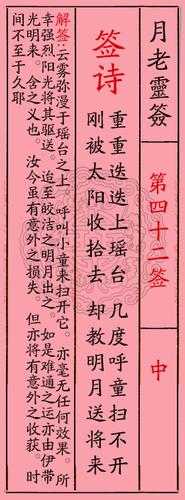 月老靈簽
第四十二签
中
签诗
重重迭迭上瑶台 几度呼童扫不开
刚被太阳收拾去 却教明月送将来
解签:云雾弥漫于瑶台之上。呼叫小童来扫开它。亦毫无任何效果。所
幸强烈阳光将其驱送。迨至皎洁之明月出之。如是难通之运亦由伊带
光明来。含之义也。汝今虽有意外之损失。但亦将有意外之收获。时
间不至于久耶